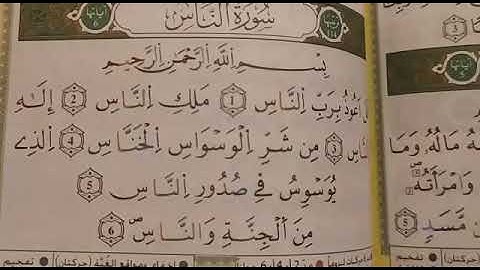 سُورَةُ النَّاسِ
بِسْمِ اللَّهِ الرَّحْمَٰنِ الرَّحِيمِ
أَعُوذُ بِرَبِّ النَّاسِ ١ مَلِكِ النَّاسِ ٢ إِلَٰهِ
النَّاسِ ٣ مِن شَرِّ الْوَسْوَاسِ الْخَنَّاسِ ٤ الَّذِي
يُوَسْوِسُ فِي صُدُورِ النَّاسِ ٥
مِنَ الْجِنَّةِ وَالنَّاسِ ٦
مَالُهُ وَمَا
وَامْرَأَتُهُ
مَّسَدٍ ٥